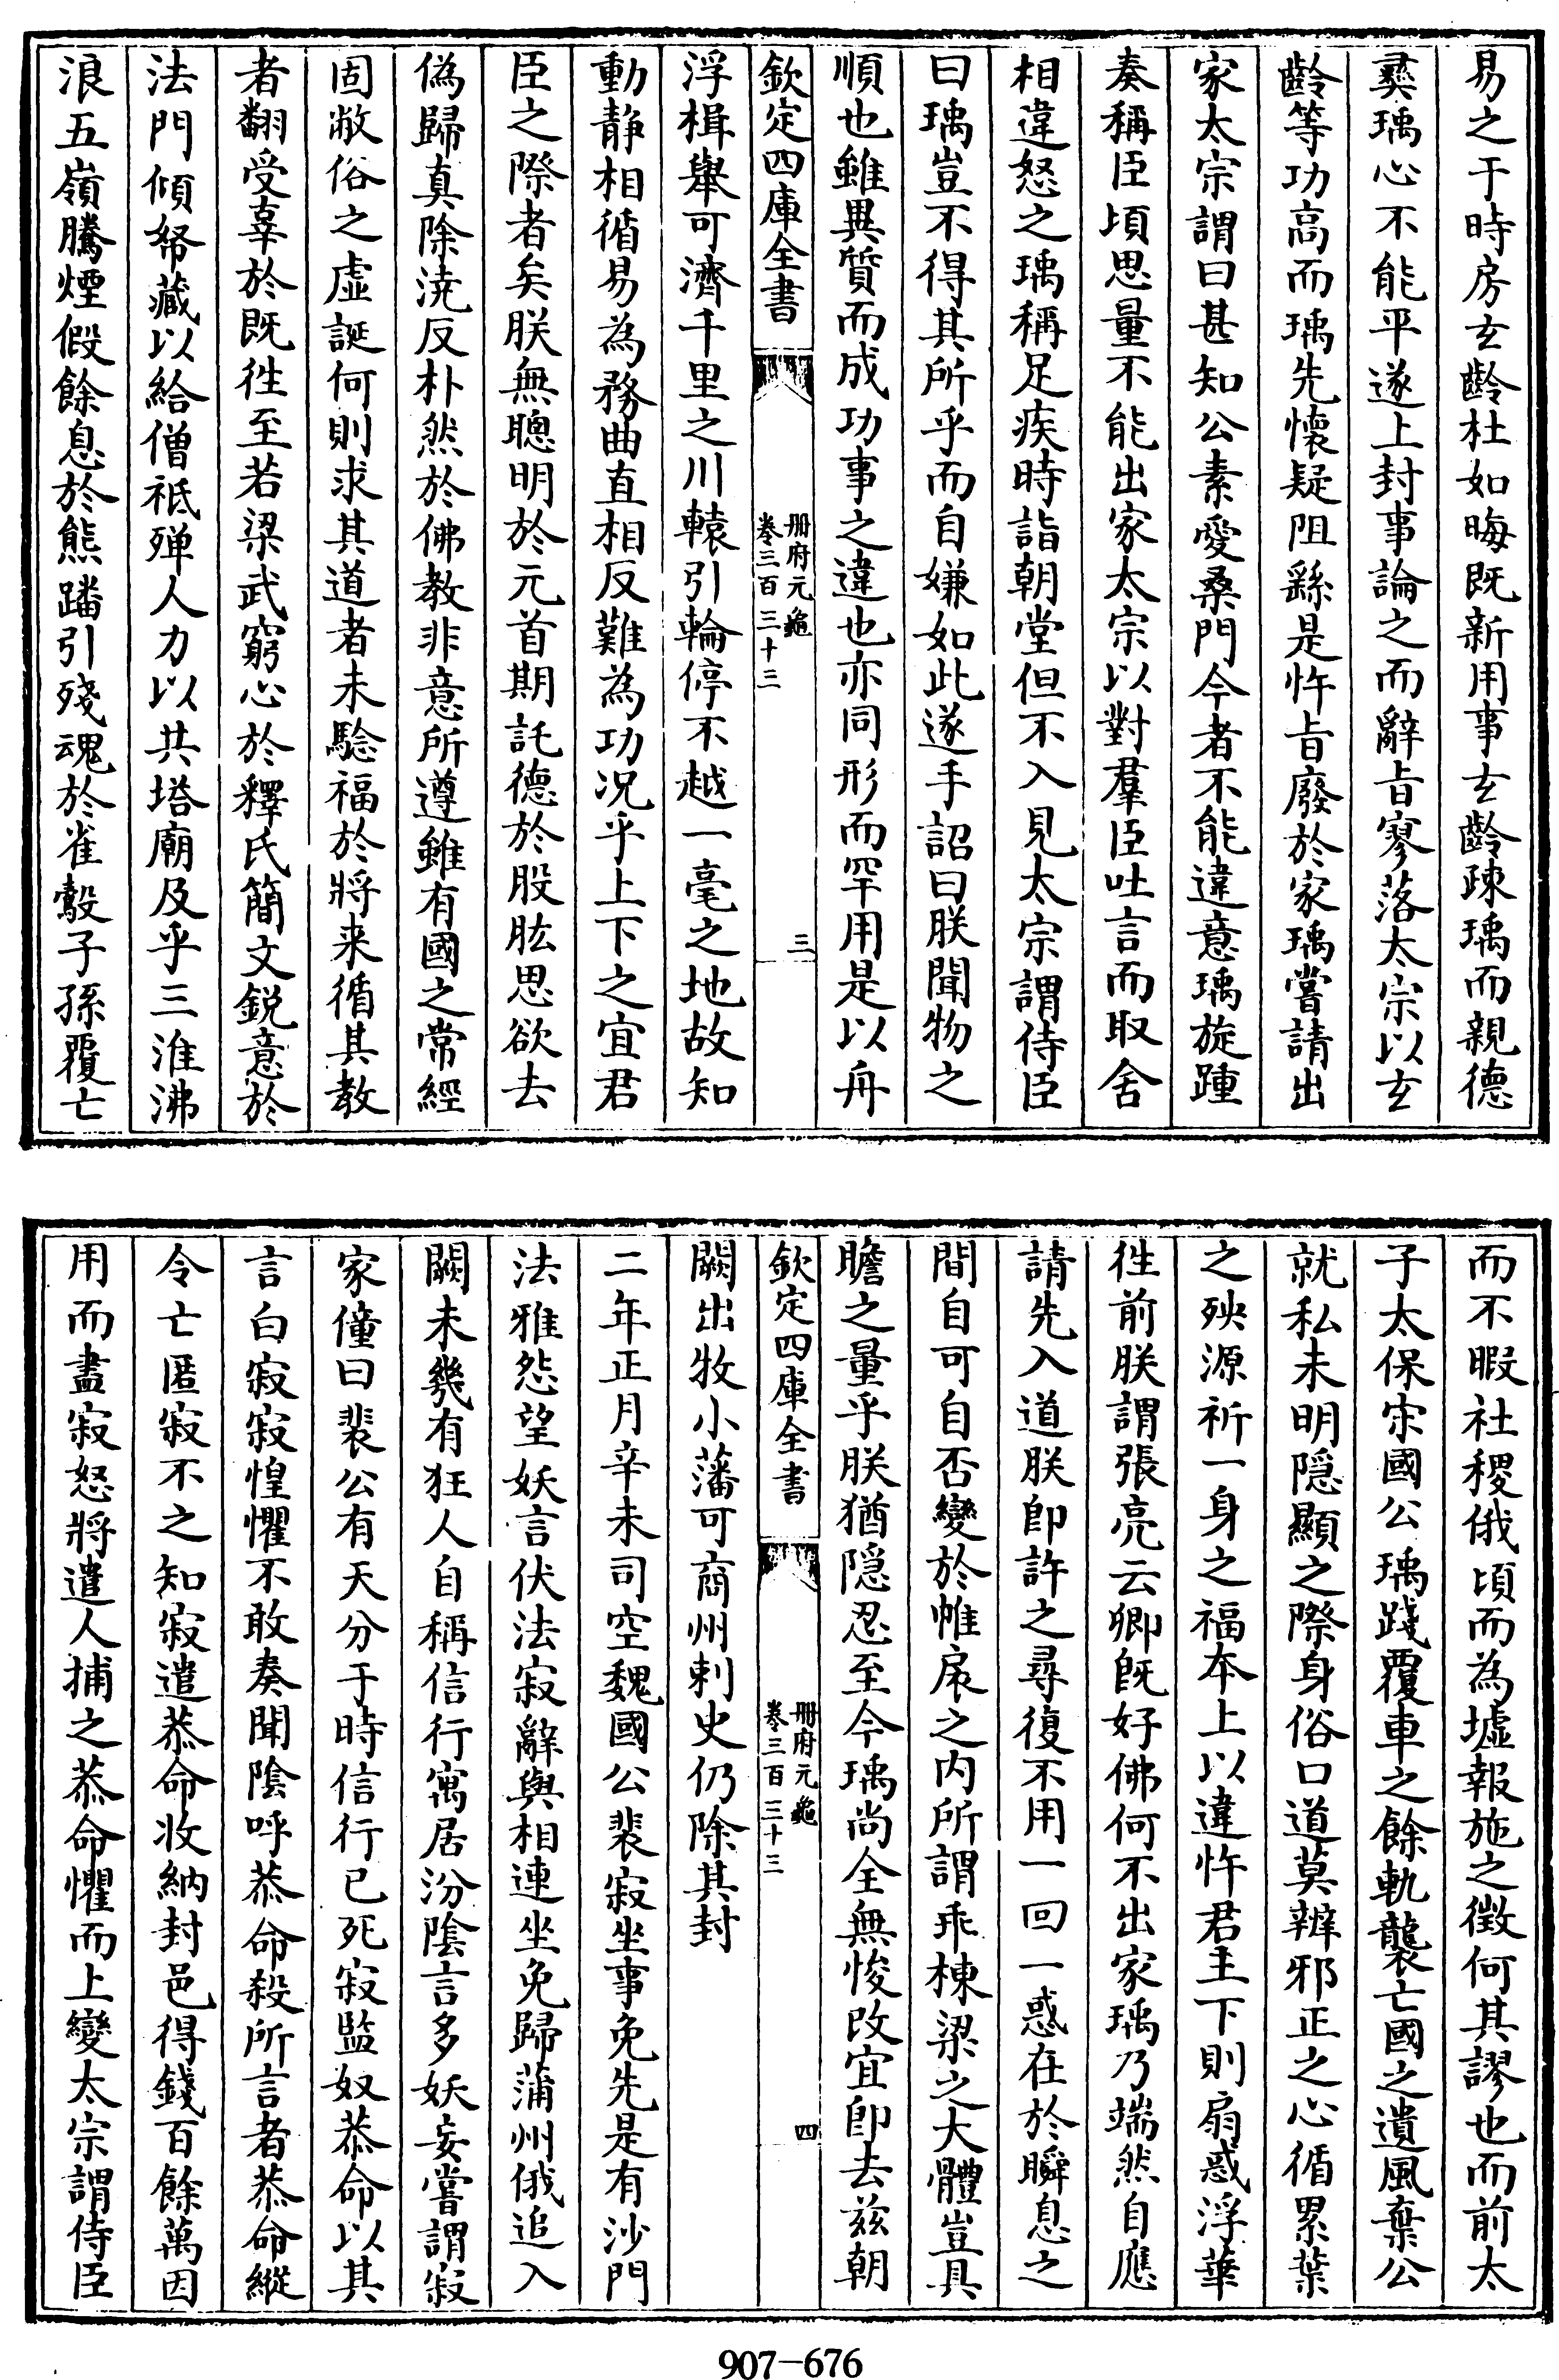 易之于時房玄齡杜如晦既新用事玄齡疎瑀而親德
彝瑀心不能平遂上封事論之而辭旨寥落太宗以玄
齡等功高而瑀先懷疑阻繇是忤旨廢於家瑀嘗請出
家太宗謂曰甚知公素愛桑門今者不能違意瑀旋踵
奏稱臣頃思量不能出家太宗以對羣臣吐言而取舍
相違怒之瑀稱足疾時詣朝堂但不入見太宗謂侍臣
曰瑀豈不得其所乎而自嫌如此遂手詔曰朕聞物之
順也雖異質而成功事之違也亦同形而罕用是以舟
欽定四庫全書
冊府元龜
卷三百三十三
三
浮楫舉可濟千里之川轅引輪停不越一毫之地故知
動静相循易為務曲直相反難為功況乎上下之宜君
臣之際者矣朕無聰明於元首期託德於股肱思欲去
偽歸真除澆反朴然於佛教非意所遵雖有國之常經
固敝俗之虛誕何則求其道者未驗福於將来循其教
者翻受辜於既徃至若梁武窮心於釋氏簡文銳意於
法門傾帑藏以給僧祇殫人力以共塔廟及乎三淮沸
浪五嶺騰煙假餘息於熊蹯引殘魂於雀鷇子孫覆亡
而不暇社稷俄頃而為墟報施之徵何其謬也而前太
子太保宋國公瑀踐覆車之餘軌襲亡國之遺風棄公
就私未明隱顯之際身俗口道莫辨邪正之心循累葉
之殃源祈一身之福本上以違忤君主下則扇惑浮華
徃前朕謂張亮云卿旣好佛何不出家瑀乃端然自應
請先入道朕卽許之尋復不用一回一惑在於瞬息之
間自可自否變於帷扆之內所謂乖棟梁之大體豈具
瞻之量乎朕猶隱忍至今瑀尚全無悛改宜卽去兹朝
欽定四庫全書
冊府元龜
卷三百三十三
四
闕出牧小藩可商州刺史仍除其封
二年正月辛未司空魏國公裴寂坐事免先是有沙門
法雅怨望妖言伏法寂辭與相連坐免歸蒲州俄追入
闕未幾有狂人自稱信行寓居汾陰言多妖妄嘗謂寂
家僮曰裴公有天分于時信行已死寂監奴恭命以其
言白寂寂惶懼不敢奏聞陰呼恭命殺所言者恭命縱
令亡匿寂不之知寂遣恭命收納封邑得錢百餘萬因
用而盡寂怒將遣人捕之恭命懼而上變太宗謂侍臣
907-676